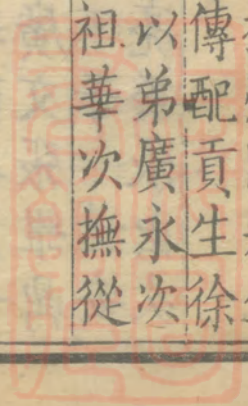 傳配貢生徐
以弟廣永次
祖華次撫從